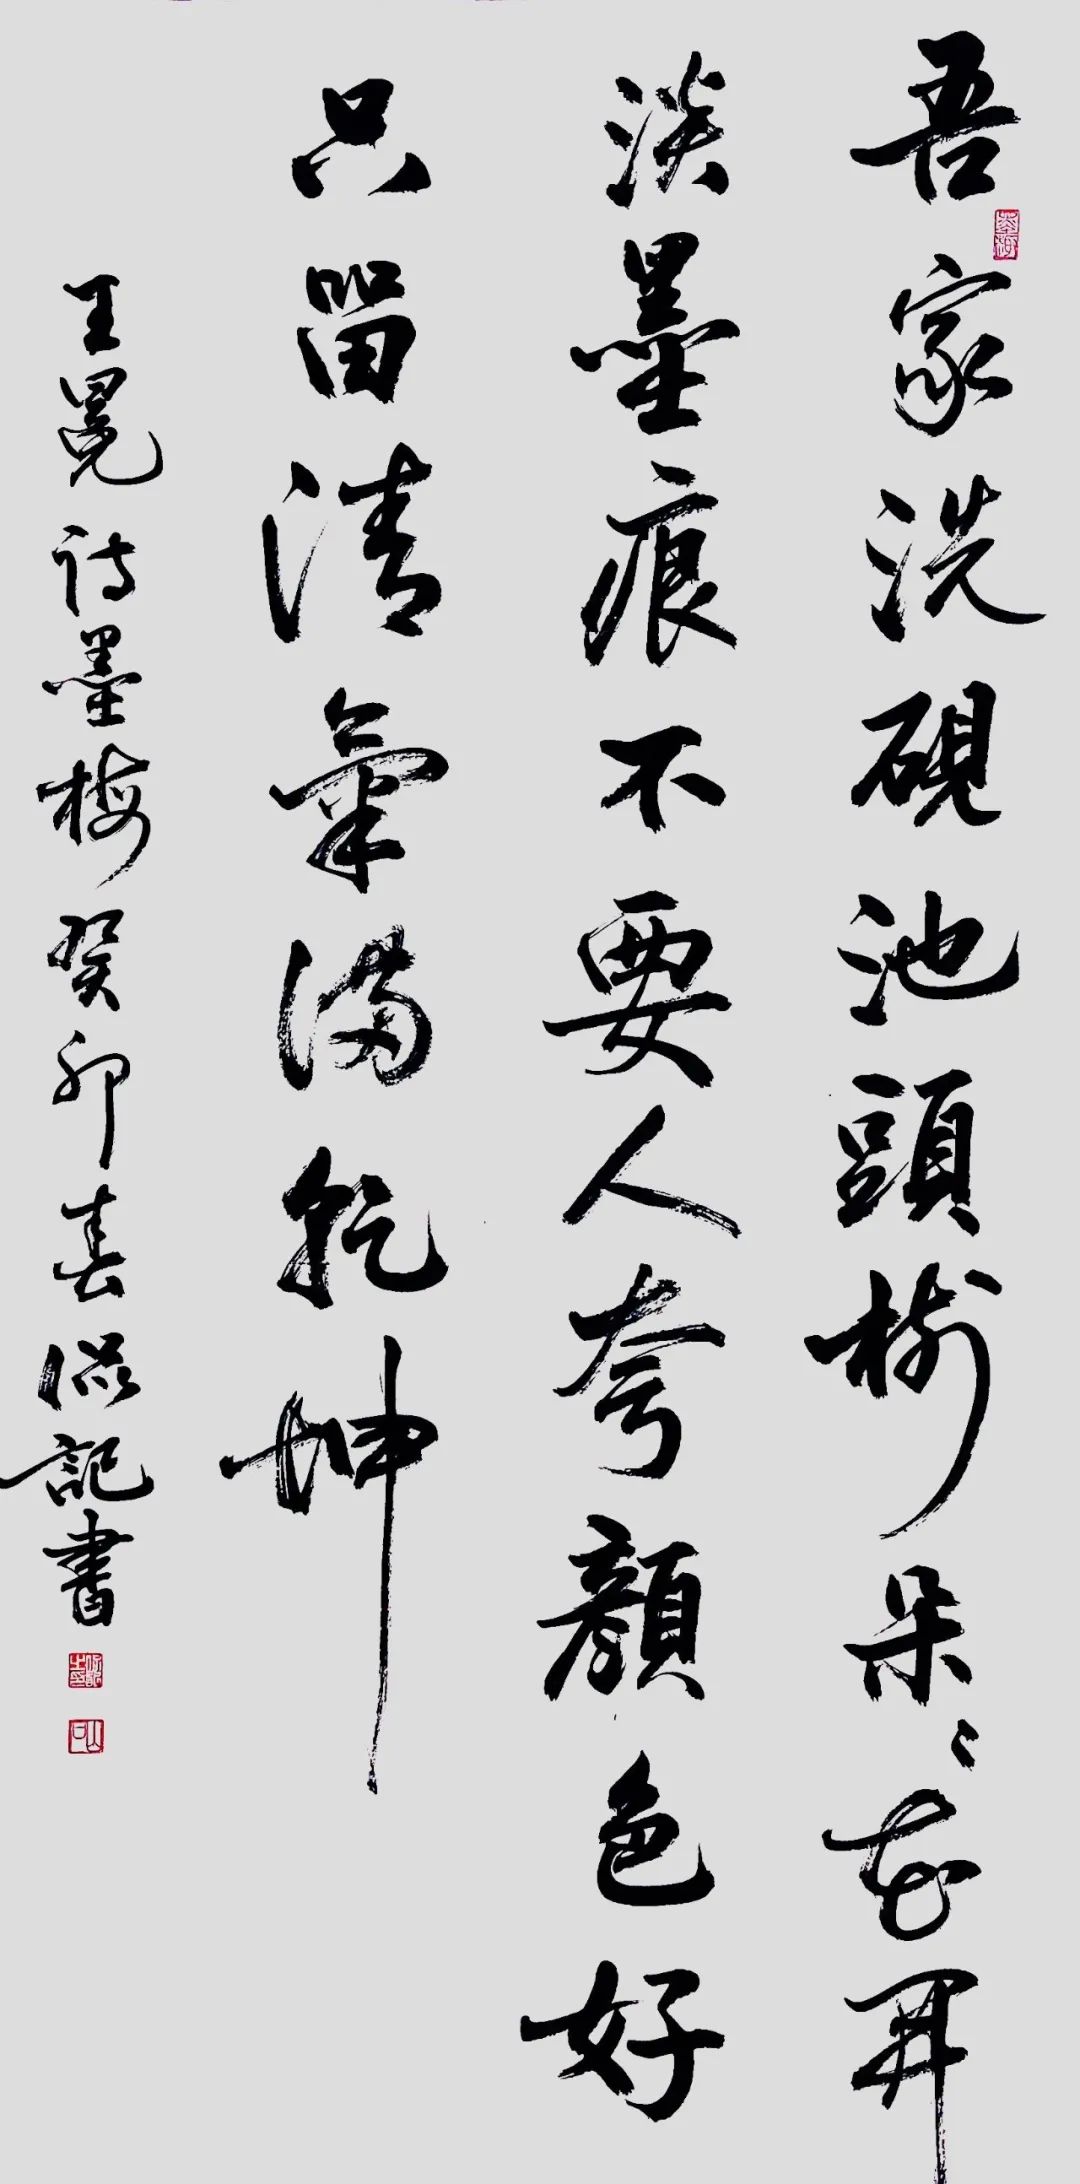 吾家洗硯池頭樹朵々花開
淡墨痕不要人夸顏色好
只留清氣滿乾坤
王冕诗墨梅癸卯春侃記書